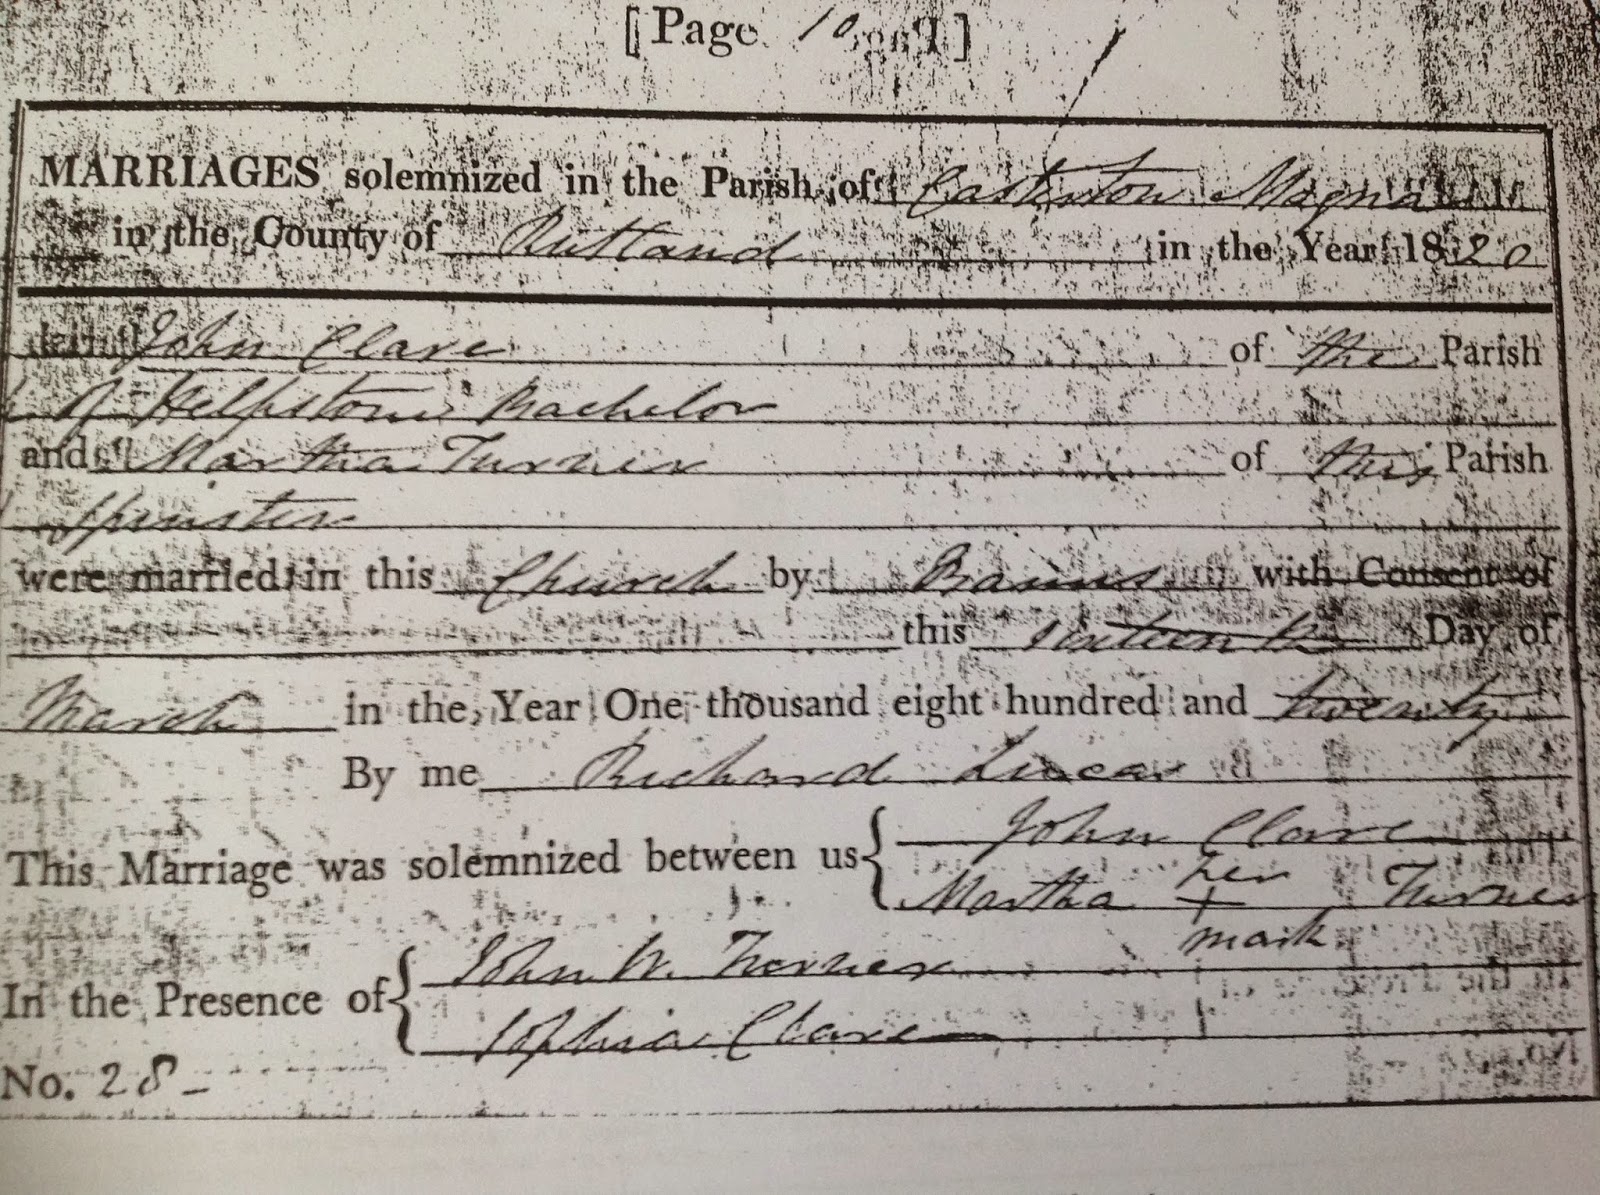 [Page 10]
MARRIAGES solemnized in the Parish of Casterton Magna
in the County of Rutland in the Year 1820
John Clare of the Parish
of Helpstone Bachelor
and Martha Turner of this Parish
Spinster
were married in this Church by Banns with Consent of
this sixteenth Day of
March in the Year One thousand eight hundred and twenty
By me Richard Lucas
This Marriage was solemnized between us { John Clare
Martha her + mark Turner
In the Presence of { John W. Turner
Sophia Clare
No. 28 -